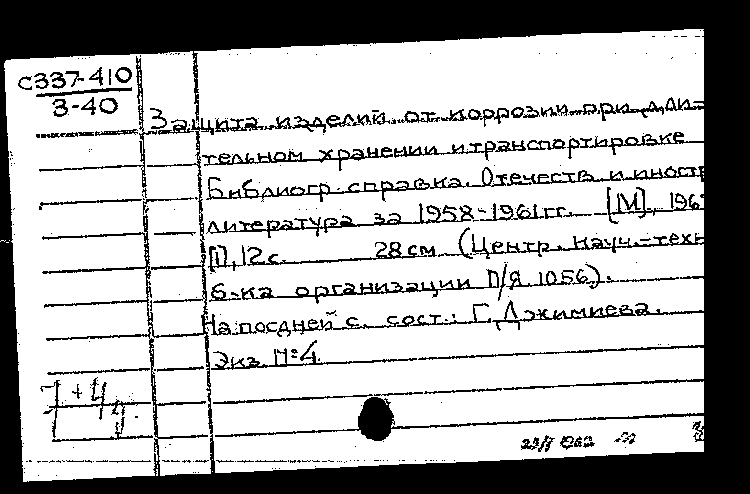 С337-410
3-40
Защита изделий от коррозии при дли-
тельном хранении и транспортировке
Библиогр. справка. Отечеств. и иностр
литература за 1958-1961 гг. [М], 196
[1], 12 с. 28 см (Центр. науч.-техн
б-ка организации П/Я 1056).
На последней с. сост.: Г. Джимиева.
Экз. №4
7 + 4